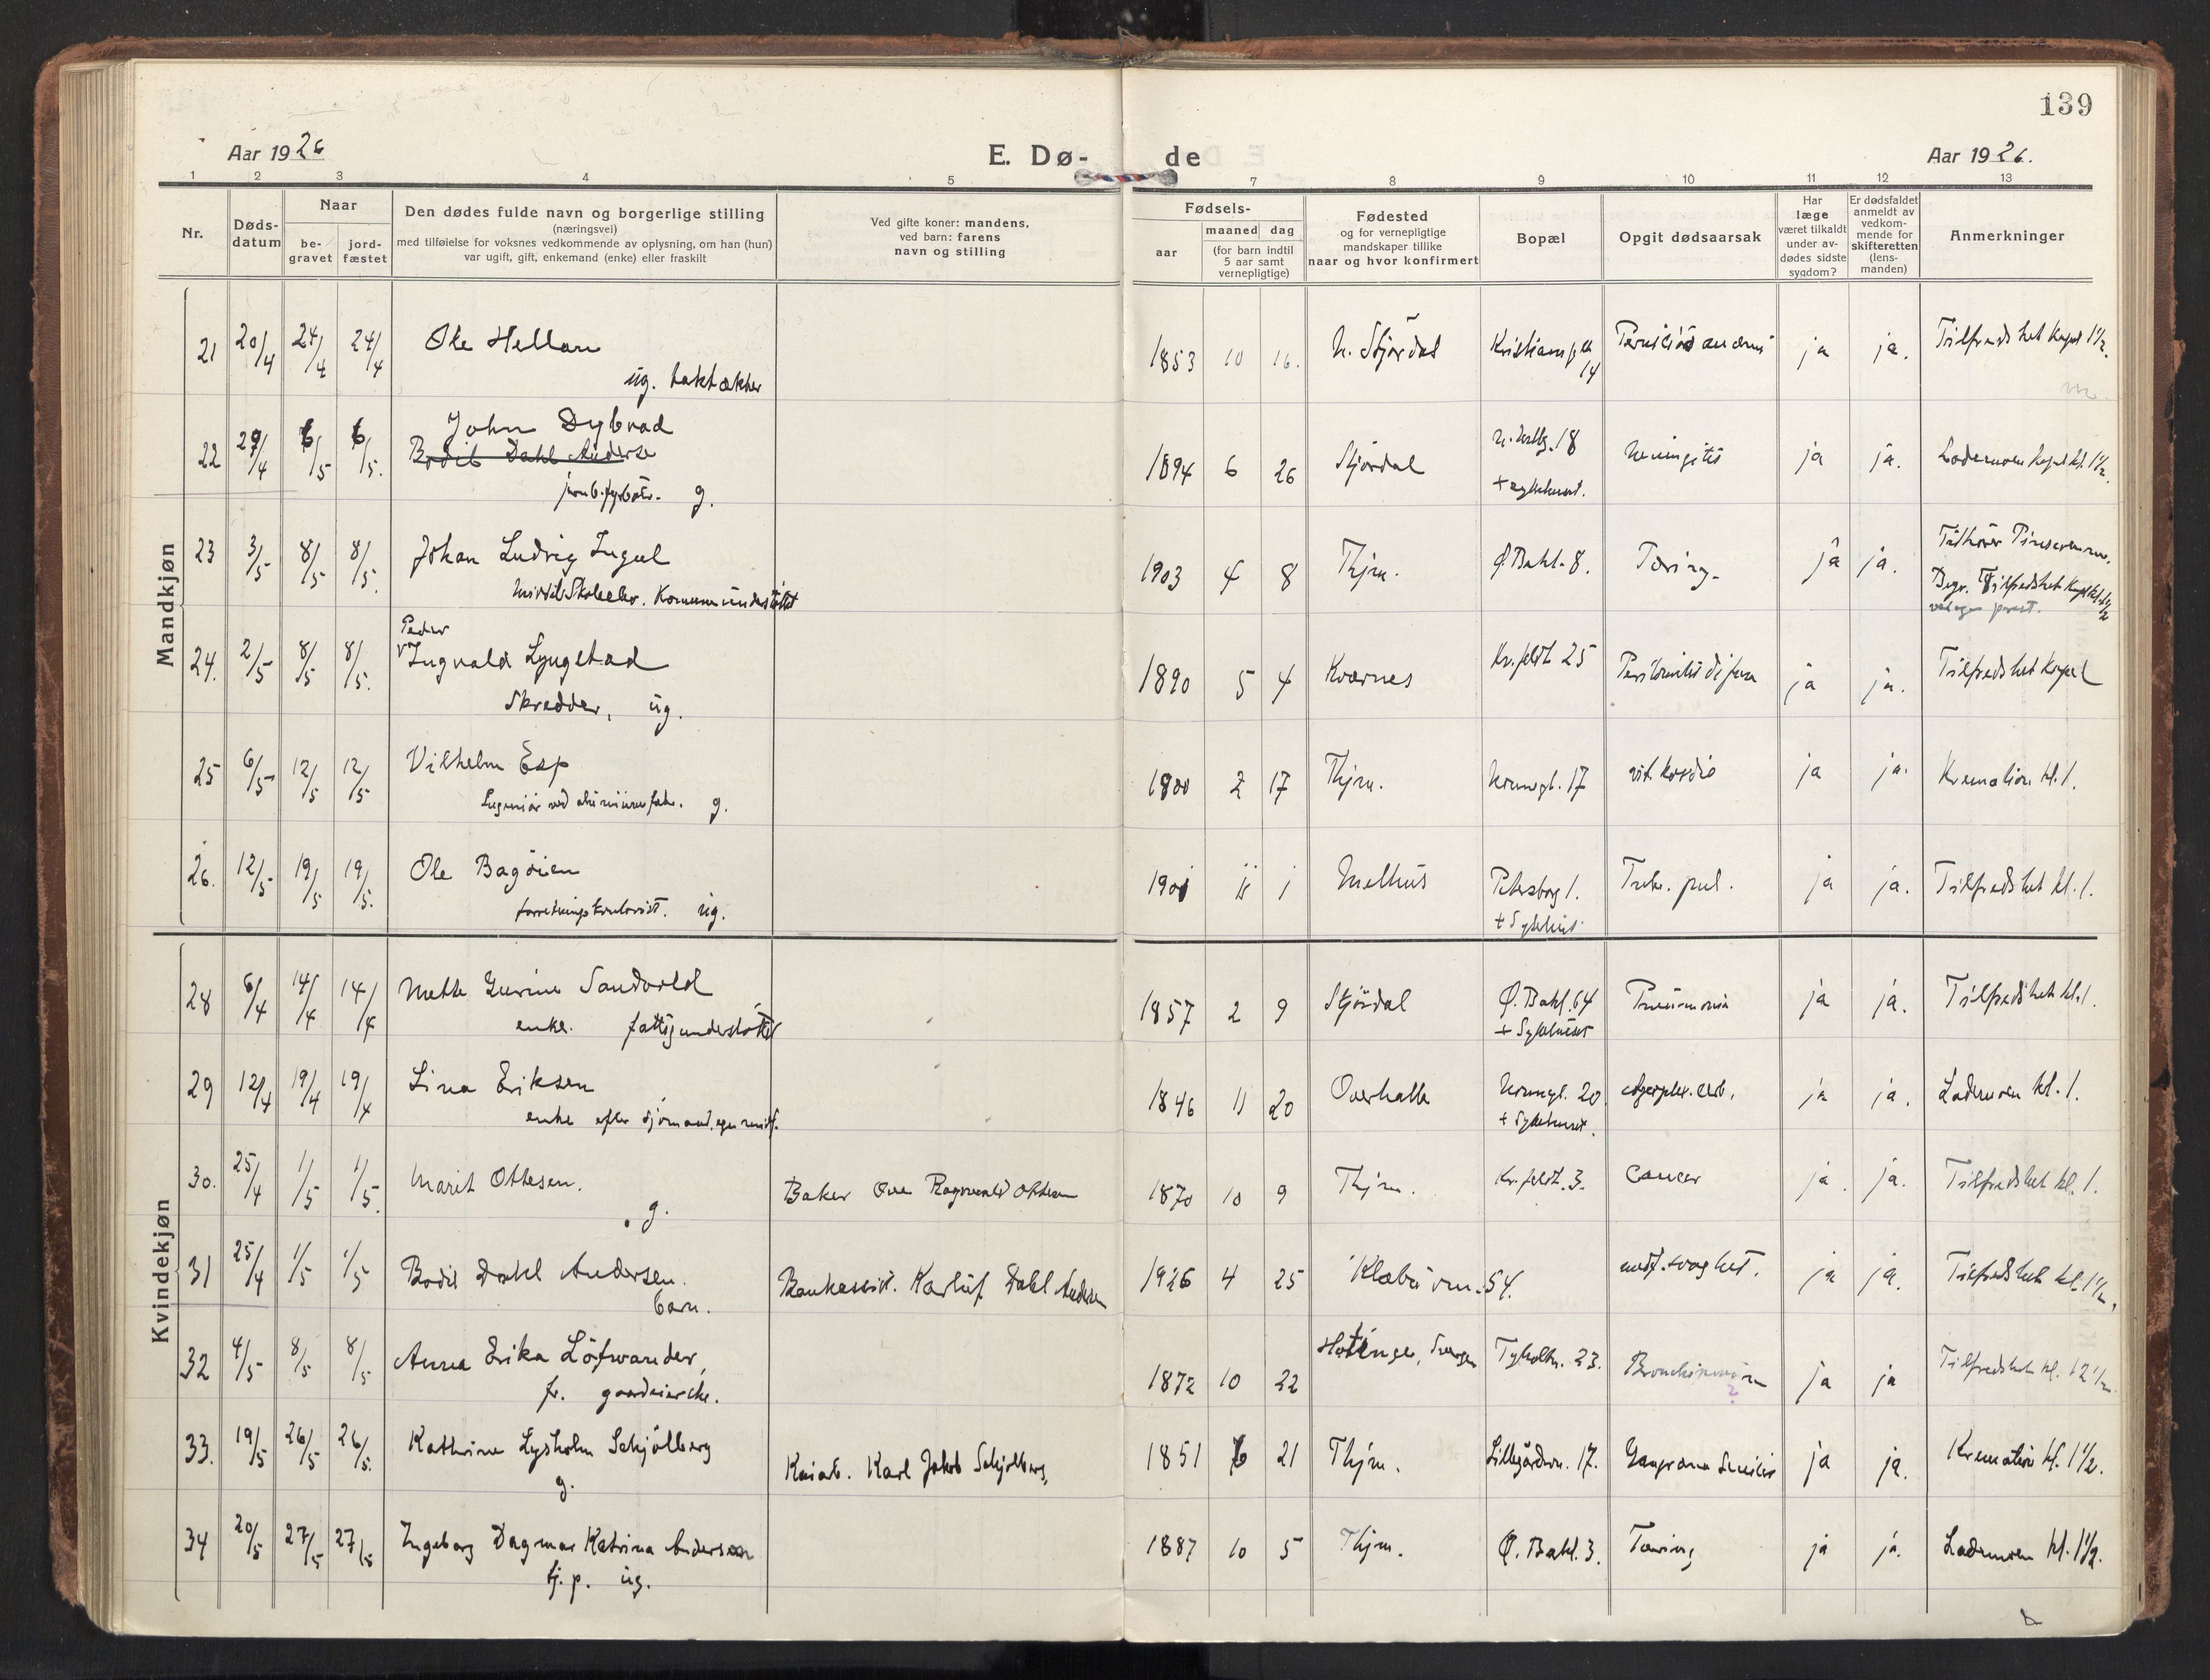 139
Aar 1926
E. Dø-
de
Aar 1926.
1 2 3 4 5 7 8 9 10 11 12 13
Nr.
Døds-
datum
Naar
be-
gravet
jord-
fæstet
Den dødes fulde navn og borgerlige stilling
(næringsvei)
med tilføielse for voksnes vedkommende av oplysning, om han (hun)
var ugift, gift, enkemand (enke) eller fraskilt
Ved gifte koner: mandens,
ved barn: farens
navn og stilling
Fødsels-
aar
maaned dag
(for barn indtil
5 aar samt
vernepligtige)
Fødested
og for vernepligtige
mandskaper tillike
naar og hvor konfirmert
Bopæl
Opgit dødsaarsak
Har
læge
været tilkaldt
under av-
dødes sidste
sygdom?
Er dødsfaldet
anmeldt av
vedkom-
mende for
skifteretten
(lens-
manden)
Anmerkninger
Mandkjøn
21 20/4 24/4 24/4 Ole Hellan 1853 10 16. N. Stjørdal 14 ja ja. Tilfredshet kapel 1½.
ug. taktækker
22 29/4 6/5 6/5. John Dybvad
Bodil Dahl Andersen
g. 1894 6 26 Stjørdal 18 + sykehuset. Meningitis ja ja. Lademoen kapel kl. 1½.
23 3/5 8/5 8/5. Johan Ludvig 1903 4 8 Thjm. Ø. Bakl. 8. Tæring. ja ja. Tilhører Pinsevennene.
Begr. Tilfredshet kapel kl. 1½
prest.
24. 2/5 8/5 8/5. Peder
Ingvald Lyngstad 1890 5 4 Kværnes Kr.feldt 25 ja ja. Tilfredshet kapel
Skredder, ug.
25 6/5 12/5 12/5 Vilhelm Esp 1900 2 17 Thjm. 17 vit. kordis ja ja. Kremation kl. 1.
Ingeniør ved g.
26. 12/5 19/5 19/5. Ole Bagøien 1901 11 1 Melhus Petersborg 1. + Sykehus Tub. pul. ja ja. Tilfredshet kl. 1.
ug.
Kvindekjøn
28 6/4 14/4 14/4 Mette Gurine Sandvold 1857 2 9 Stjørdal Ø. Bakl. 64 + Sykehuset Pneumonia ja ja. Tilfredshet kl. 1.
enke. fattigunderstøttet
29 12/4 19/4 19/4 Lina Eriksen 1846 11 20 Overhalla 20 + Sykehuset. ja ja. Lademoen kl. 1.
enke efter sjømand,
30. 25/4 1/5 1/5. Marit Ottesen. Baker Ove Ragnvald Ottesen 1870 10 9 Thjm. Kr.feldt. 3. Cancer ja. ja. Tilfredshet kl. 1.
g.
31 25/4 1/5 1/5 Bodil Dahl Andersen. Bankassist. Karluf Dahl Andersen 1926 4 25 Klæbuvn. 54. medf. svaghet. ja ja. Tilfredshet kl. 1½.
barn.
32 4/5 8/5 8/5 Anna Erika Löfwander, 1872 10 22 Tyholtv. 23. ja ja Tilfredshet kl. 12½.
fr. gaardeierske.
33. 19/5 26/5 26/5. Kathrine Lysholm Schjølberg Karl Jakob Schjølberg, 1851 6 21 Thjm. Lillegårdsv. 17. Gangræna Senilis ja ja. Kremation kl. 1½.
g.
34 20/5 27/5 27/5 Ingeborg Dagmar Katrina Andersen 1887 10 5 Thjm. Ø. Bakl. 3. Tæring ja ja. Lademoen kl. 1½.
tj. p. ug.